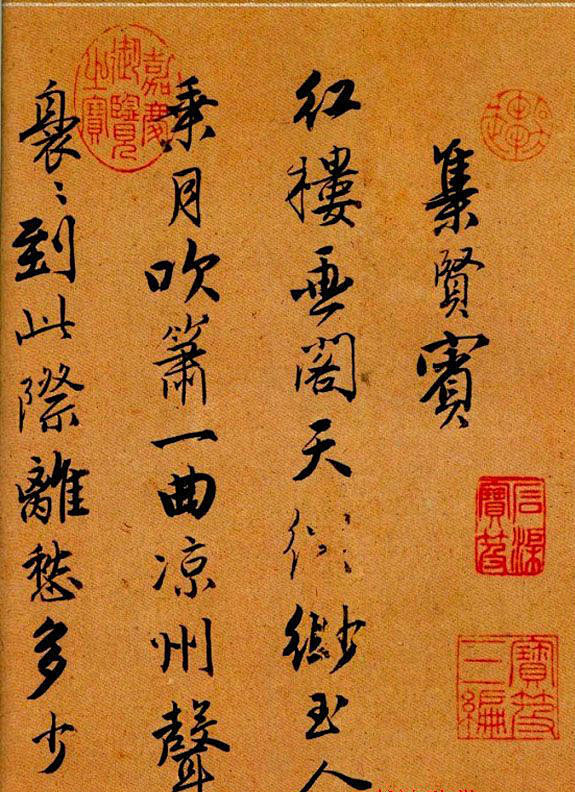 集賢賓
紅樓畫閣天縹緲玉人
乘月吹簫一曲涼州聲
裊〻到此際離愁多少
嘉慶御覽之寶
石渠寶笈
寶笈三編